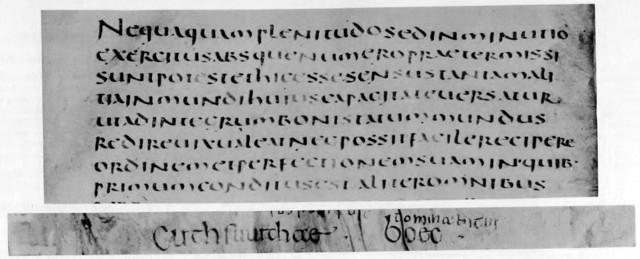 NEQUAQUAMPLENITUDOSEDINMINUTIO
EXERCITUSABSQUENUMEROPRAETERMISSI
SUNTPOTESTETHICESSESENSUSTANTAMALI
TIAINMUNDIHUIUSCAPACITATEUERSATUR
UTADINTEGRUMBONISTATUMMUNDUS
REDIREUIXUALEATNECPOSSITFACILERECIPERE
ORDINEMETPERFECTIONEMSUAMINQUIB;
PRIMUMCONDITUSESTALITEROMNIBUS
Cuthsuuithae · boec ·